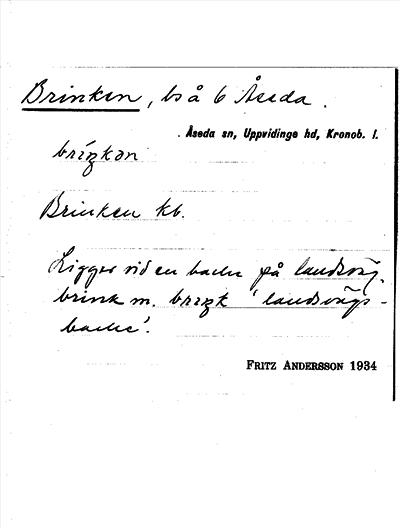 Brinken, bs å 6 Åseda.
Åseda sn, Uppvidinge hd, Kronob. l.
bríŋkən
Brinken kb.
Ligger vid en backe på landsväg.
brink m. brıŋk 'landsvägs-
backe'.
FRITZ ANDERSSON 1934